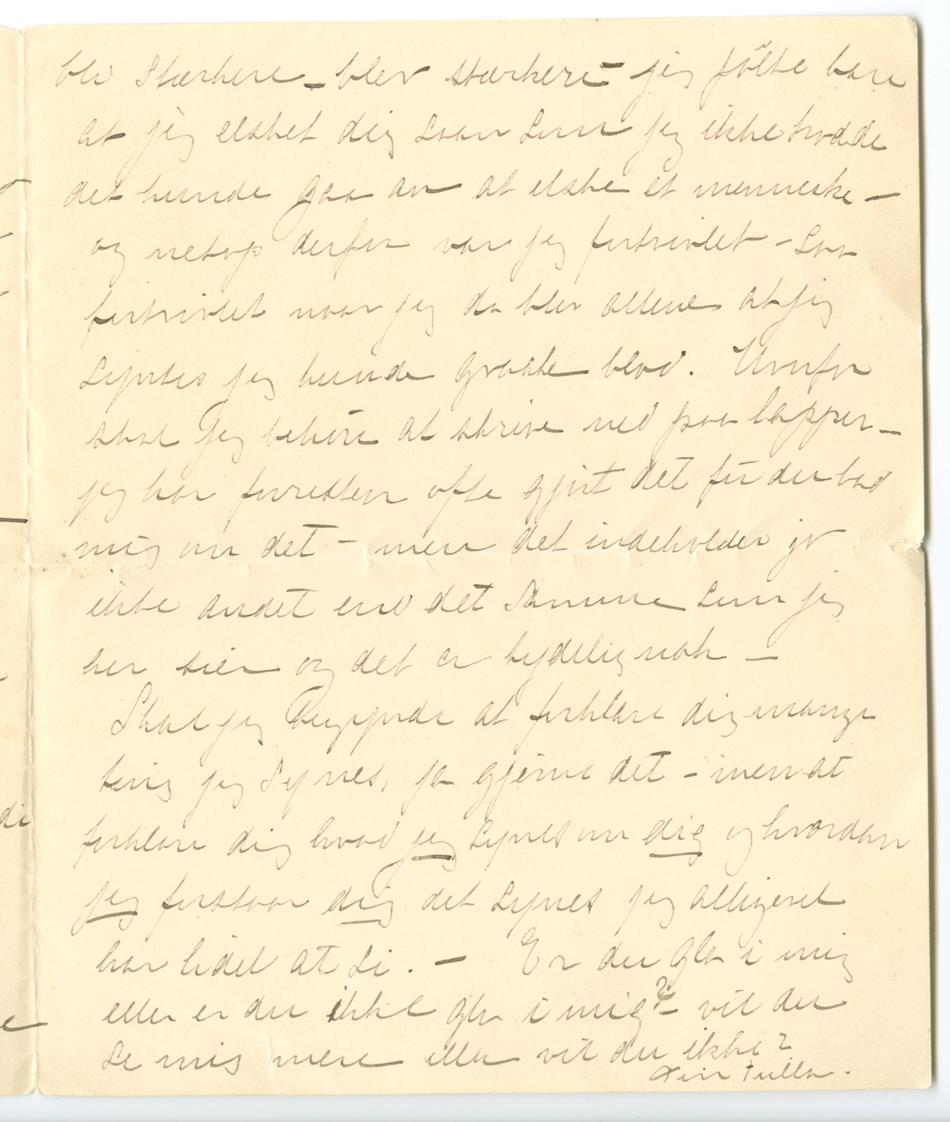 bli stærkere – blev stærkere – jeg følte bare
at jeg elsket dig saan som jeg ikke trodde
det kunde gaa an at elske et menneske –
og netop derfor var jeg fortvivlet – saa
fortvivlet naar jeg da blev allene at jeg
syntes jeg kunde grate blod. Hvorfor
skal jeg behøve at skrive ned paa lapper –
jeg har forresten ofte gjort det før du bad
mig om det – men det indeholder jo
ikke andet end det samme som jeg
her sier og det er tydelig nok –
Skal jeg begynde at forklare dig mange
ting jeg synes, ja gjerne det – men at
forklare dig hvad jeg synes om dig og hvordan
jeg forstaar dig det synes jeg alligevel
har lidet at si. – Er du gla i mig
eller er du ikke gla i mig? – vil du
se mig mere eller vil du ikke?
Din Tulla.
di
e